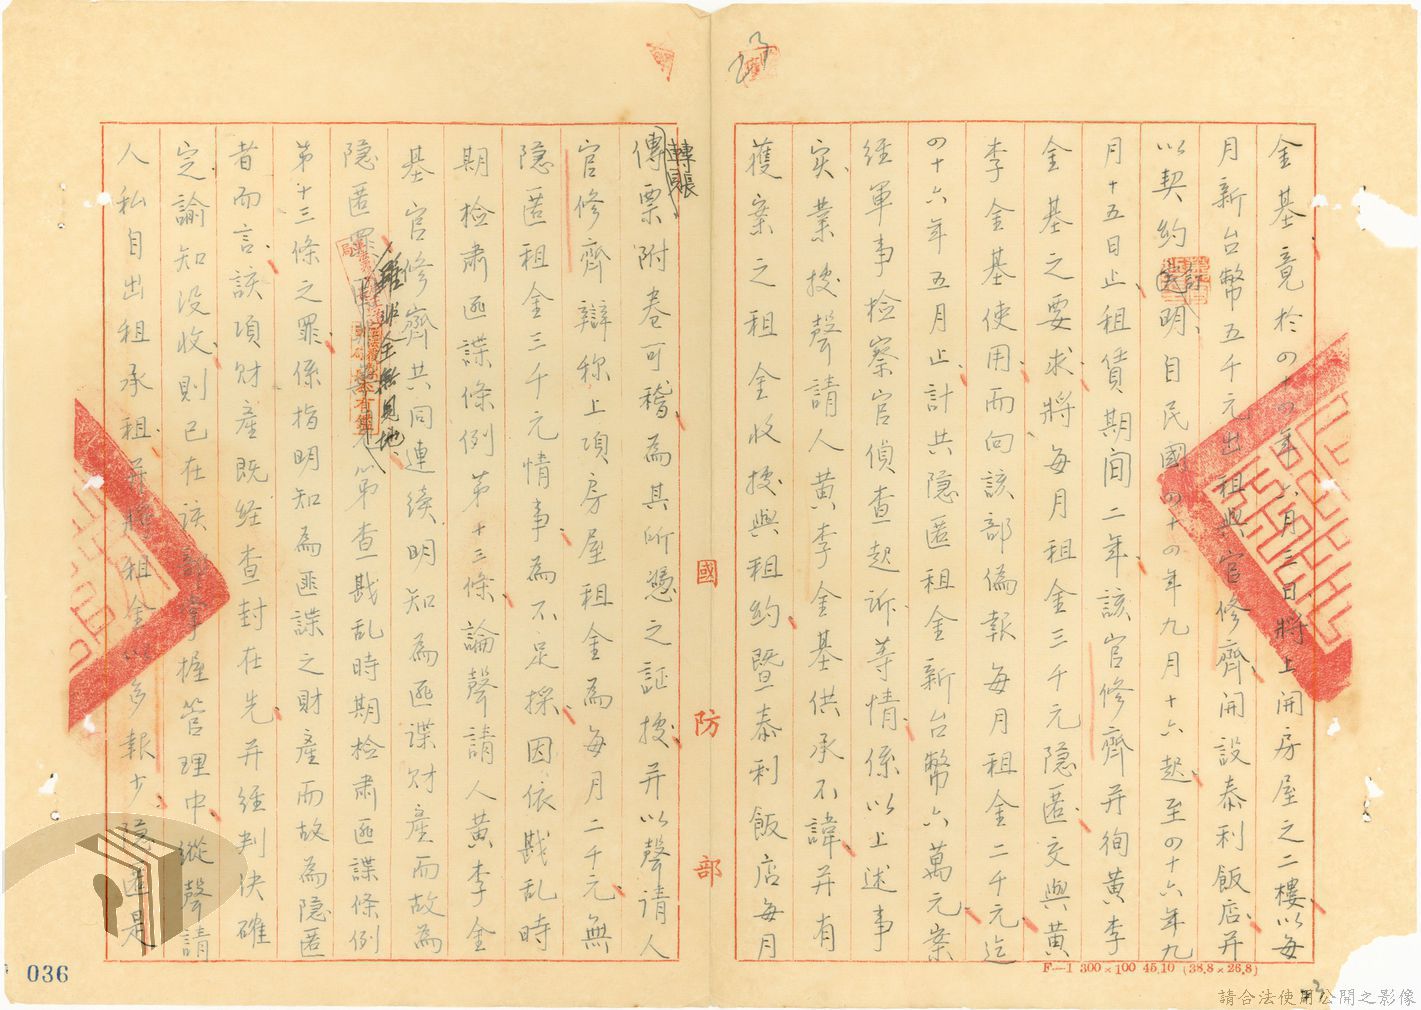 金基竟於四十四年八月三日將上開房屋之二樓以每
月新台幣五千元出租與官修齊開設泰利飯店并
以契約訂明自民國四十四年九月十六起至四十六年九
月十五日止租賃期間二年該官修齊并徇黃李
金基之要求將每月租金三千元隐匿交與黃
李金基使用而向該部偽報每月租金二千元迄
四十六年五月止計共隐匿租金新台幣六萬元案
經軍事检察官偵查起訴等情係以上述事
实業据聲請人黃李金基供承不諱并有
獲案之租金收据與租約暨泰利飯店每月
傳票附卷可稽為其所憑之証据并以聲请人
轉賬
官修齊辯称上項房屋租金為每月二千元無
隐匿租金三千元情事為不足採因依戡乱時
期检肅匪諜條例第十三條論聲請人黃李金
基官修齊共同連续明知為匪諜财產而故為
隐匿罪
雖非全無見地
第查戡乱時期检肅匪諜條例
第十三條之罪係指明知為匪諜之財產而故為隐匿
者而言該項财產既经查封在先并经判决確
定諭知没收則已在該部掌握管理中縱聲請
人私自出租承租并將租金以多報少隐匿是
國防部
F—1 300×100 45.10 (38.8×26.8)
036
請合法使用公開之影像